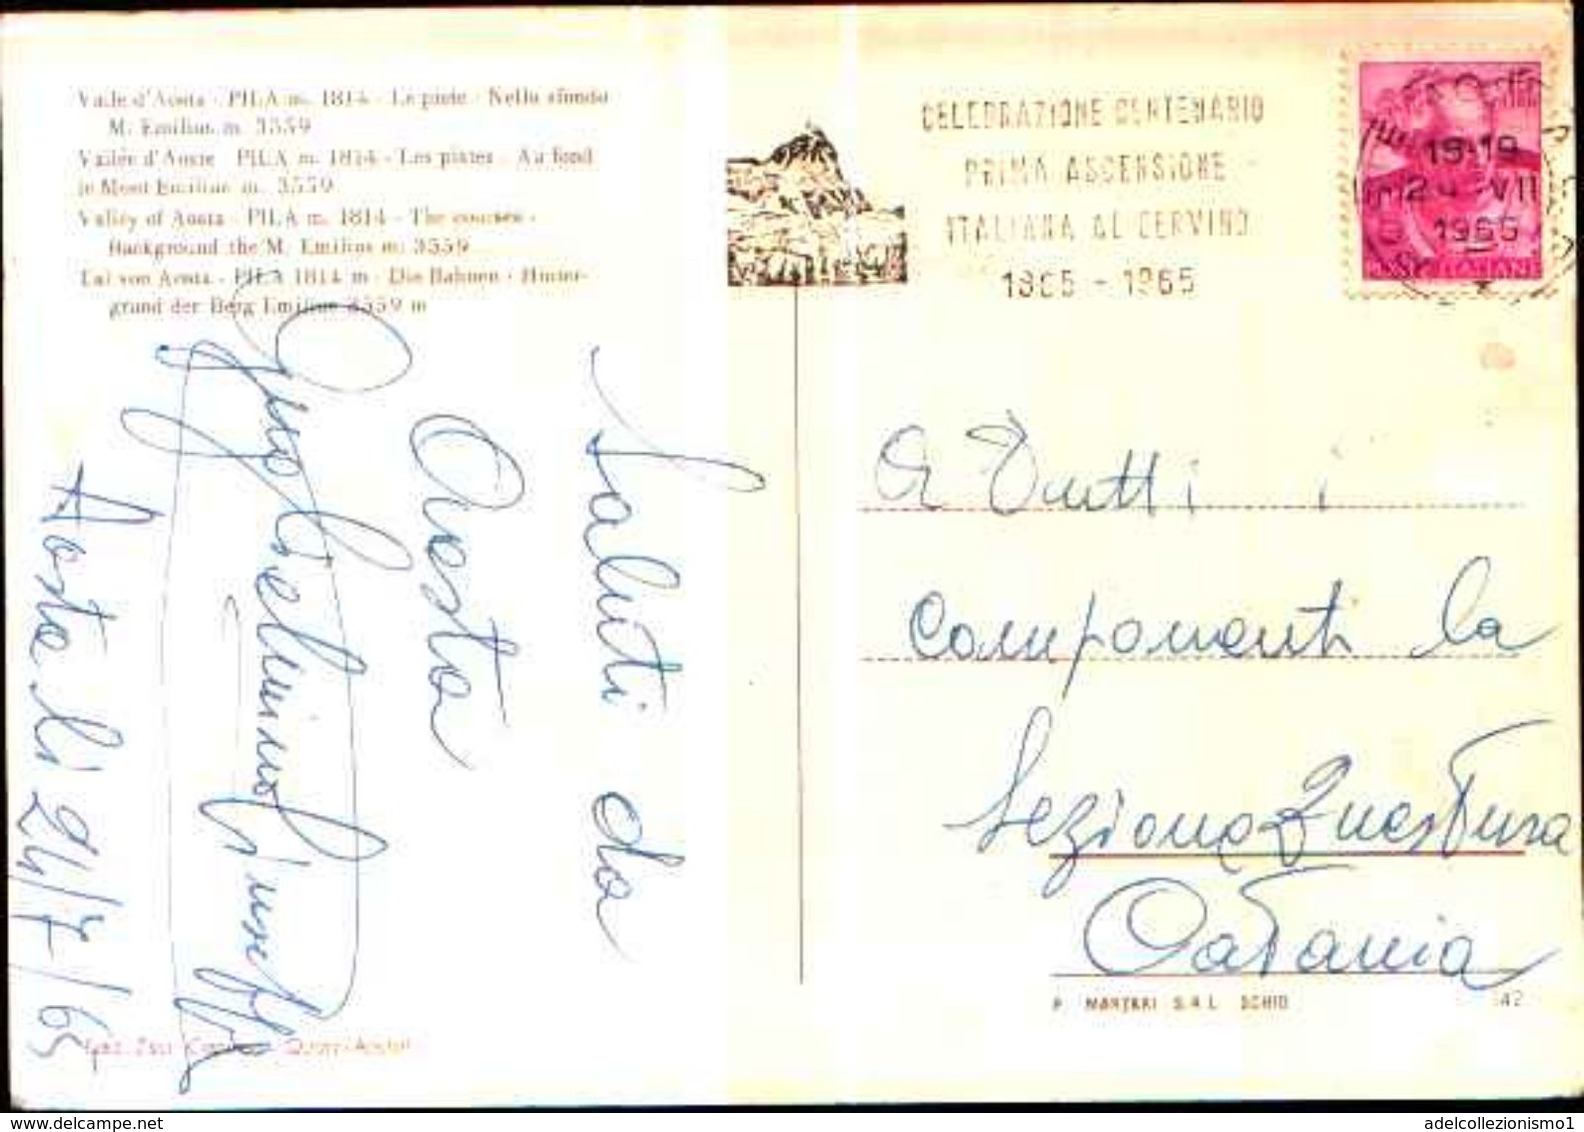 Valle d'Aosta - PILA m. 1814 - Le piste - Nello sfondo
M. Emilius m. 3559
Vallée d'Aoste PILA m. 1814 - Les pistes - Au fond
le Mont Emilius m. 3559
Valley of Aosta - PILA m. 1814 - The courses -
Background the M. Emilius m. 3559
Tal von Aosta - PILA 1814 m - Die Bahnen - Hinter-
grund der Berg Emilius 3559 m
CELEBRAZIONE CENTENARIO
PRIMA ASCENSIONE
ITALIANA AL CERVINO
1865 - 1965
19-19
24 VII
1965
Saluti da
Aosta
Guglielmino Giuseppe
Aosta li 24/7/65
A Tutti i
Componenti la
Sezione Questura
Catania
P. MARZARI S.R.L. SCHIO
42
adelcollezionismo1